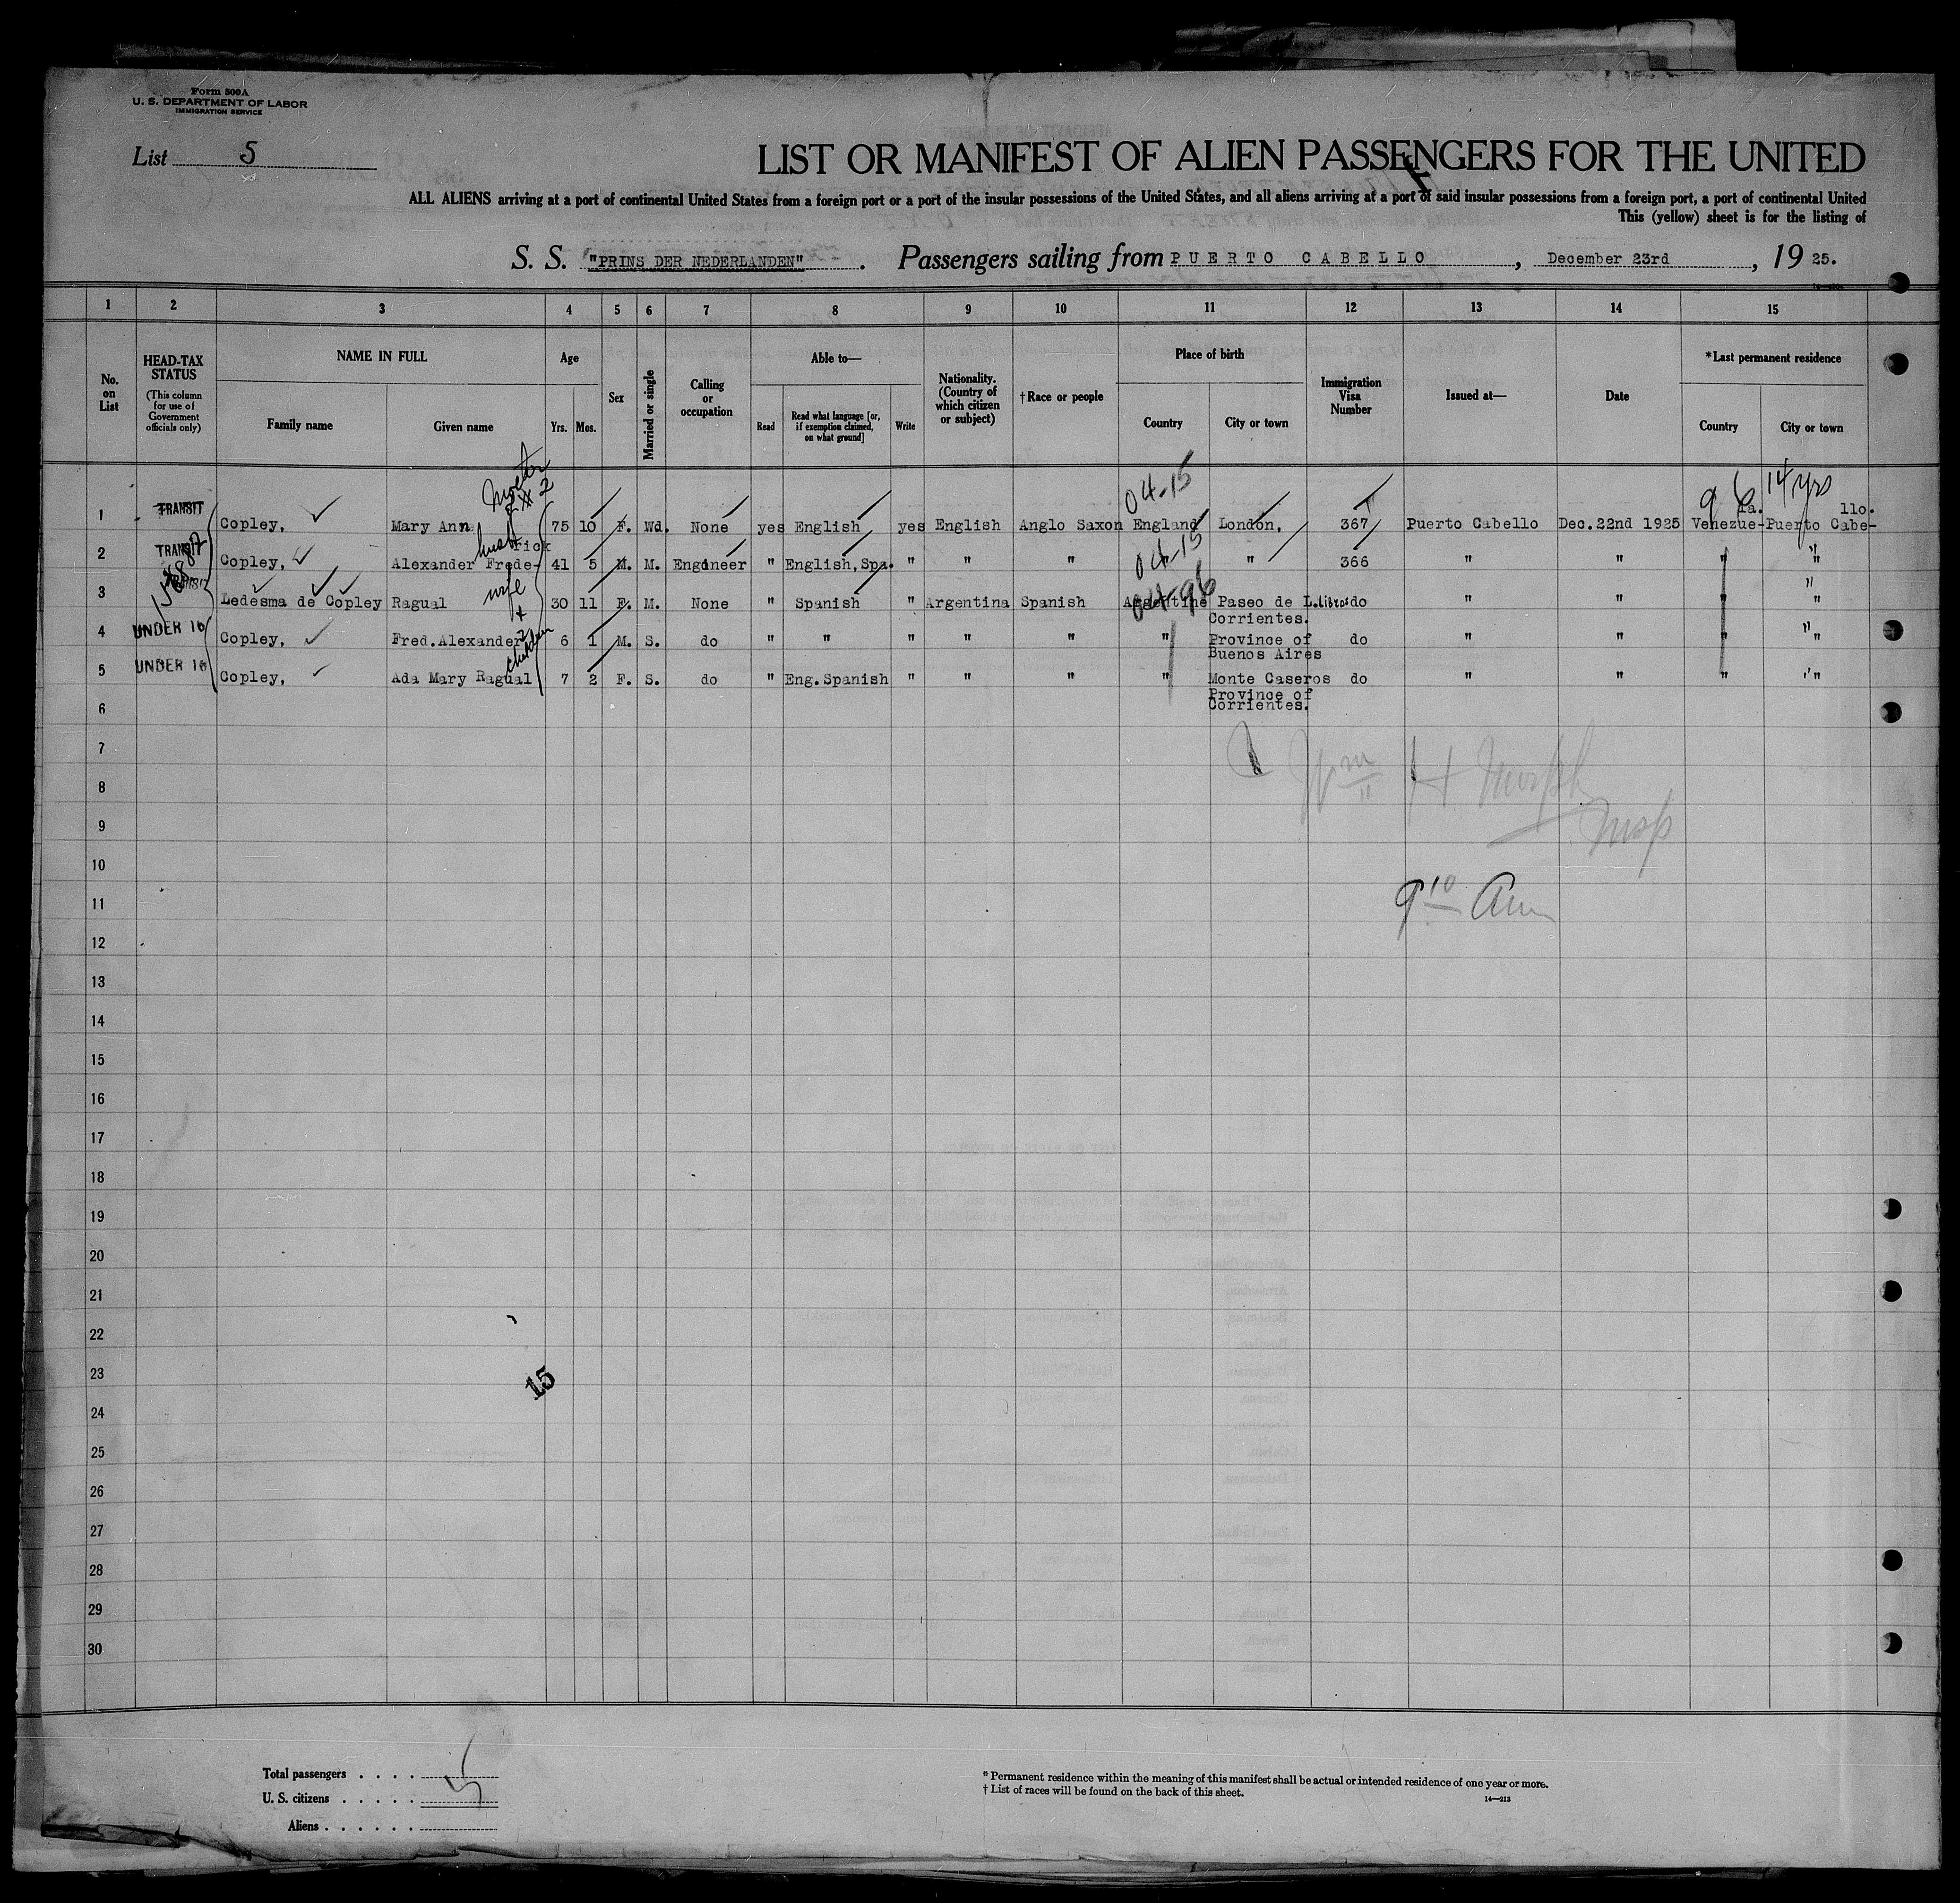 Form 500A
U. S. DEPARTMENT OF LABOR
IMMIGRATION SERVICE
List 5
LIST OR MANIFEST OF ALIEN PASSENGERS FOR THE UNITED
ALL ALIENS arriving at a port of continental United States from a foreign port or a port of the insular possessions of the United States, and all aliens arriving at a port of said insular possessions from a foreign port, a port of continental United
This (yellow) sheet is for the listing of
S. S. "PRINS DER NEDERLANDEN". Passengers sailing from PUERTO CABELLO, December 23rd, 1925.
1 2 3 4 5 6 7 8 9 10 11 12 13 14 15
No. on List
HEAD-TAX STATUS
(This column for use of Government officials only)
NAME IN FULL
Family name
Given name
Age
Yrs. Mos.
Sex
Married or single
Calling or occupation
Able to—
Read
Read what language [or, if exemption claimed, on what ground]
Write
Nationality. (Country of which citizen or subject)
†Race or people
Place of birth
Country
City or town
Immigration Visa Number
Issued at—
Date
*Last permanent residence
Country
City or town
mother
04-15
14 yrs
1 TRANSIT Copley, Mary Ann 75 10 F. Wd. None yes English yes English Anglo Saxon England London, 367 Puerto Cabello Dec.22nd 1925 Venezue-la. Puerto Cabe-llo.
husb
04-15
2 TRANSIT Copley, Alexander Frede-rick 41 5 M. M. Engineer " English,Spa. " " " " " 366 " " " "
wife +
04-96
3 Ledesma de Copley Ragual 30 11 F. M. None " Spanish " Argentina Spanish Argentine Paseo de L.Libros do " " " "
Corrientes.
2 children
4 UNDER 16 Copley, Fred.Alexander 6 1 M. S. do " " " " " " Province of Buenos Aires do " " " "
5 UNDER 16 Copley, Ada Mary Ragual 7 2 F. S. do " Eng.Spanish " " " " Monte Caseros do " " " "
Province of
Corrientes.
6
7
Wm H. Murph
8
9
Insp
10
11
9 10 Am
12
13
14
15
16
17
18
19
20
21
22
23
15
24
25
26
27
28
29
30
Total passengers . . . . 5
U. S. citizens . . . . .
Aliens . . . . . .
* Permanent residence within the meaning of this manifest shall be actual or intended residence of one year or more.
† List of races will be found on the back of this sheet.
14—213